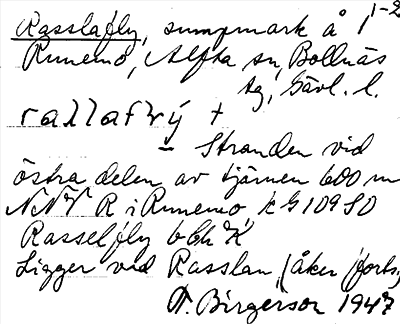 Rasslafly, sumpmark å 1 1-2
Runemo, Alfta sn, Bollnäs
tg, Gävl. l.
+
Stranden vid
östra delen av tjärnen 600 m
NNV R i Runemo, k G 109 SO
Rasselfly bbh K
Ligger vid Rasslan, (åker forts.)
T. Birgerson 1947